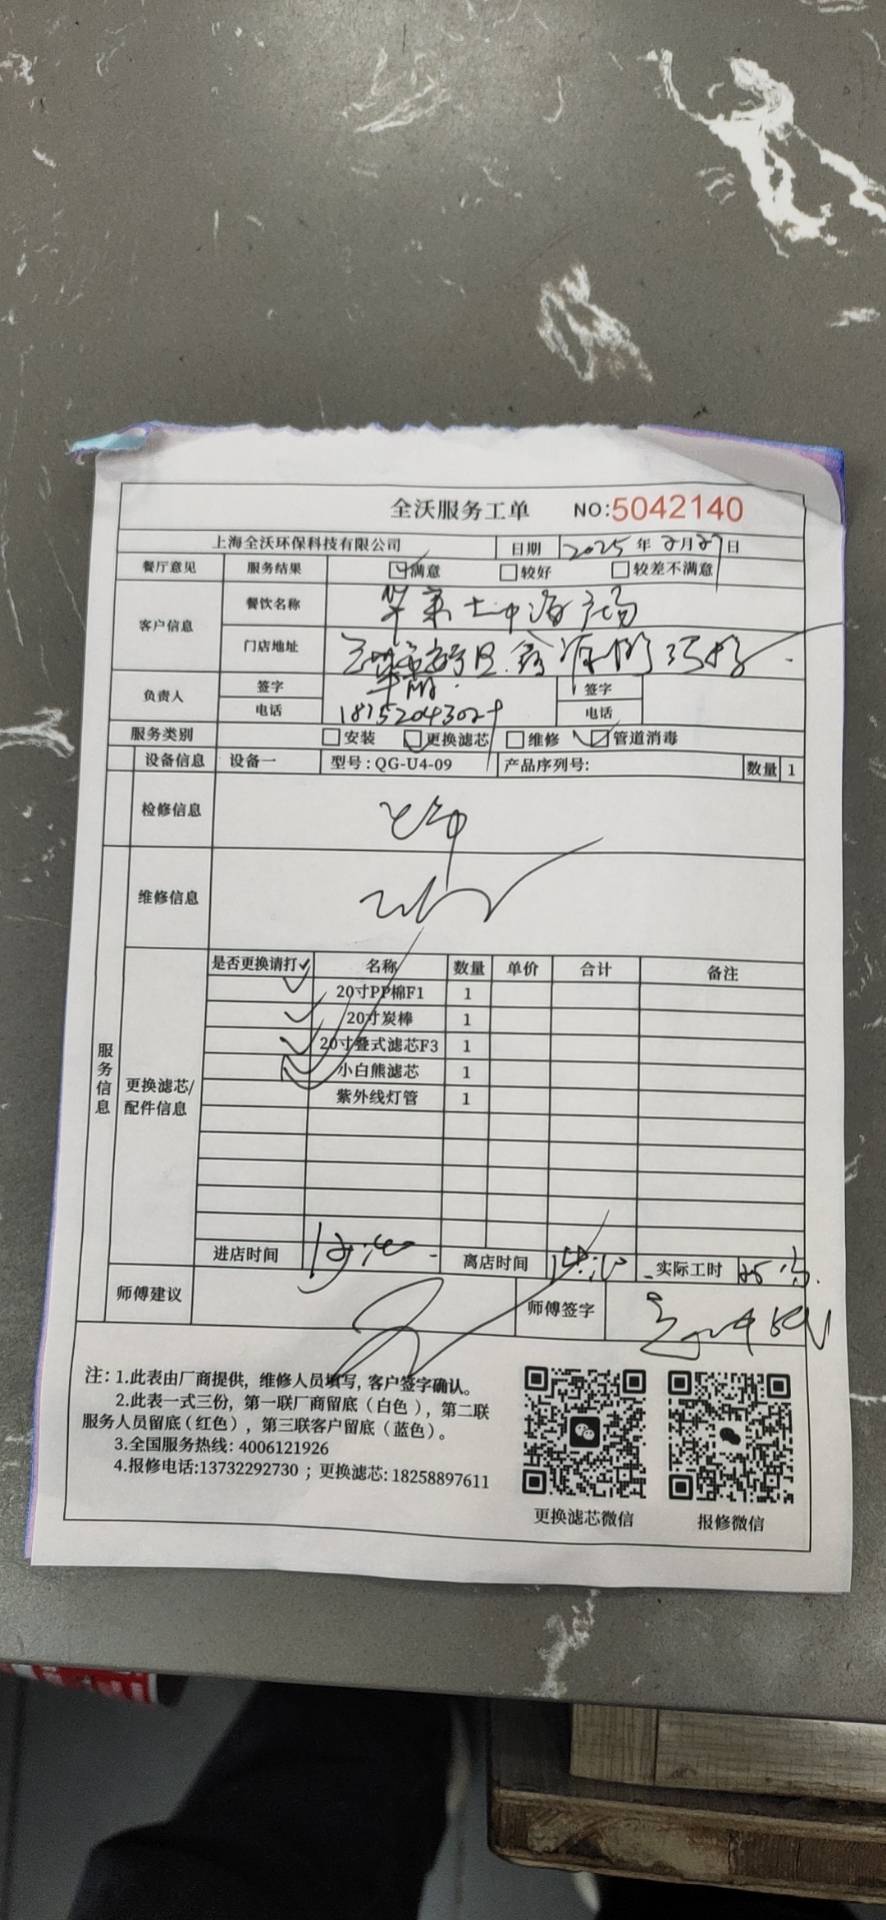 全沃服务工单 NO:5042140
上海全沃环保科技有限公司 日期 2025 年 2月27日
餐厅意见 服务结果 满意 较好 较差不满意
客户信息 餐饮名称
门店地址
负责人 签字 签字
电话 电话
服务类别 安装 更换滤芯 维修 管道消毒
设备信息 设备一 型号:QG-U4-09 产品序列号: 数量 1
检修信息
维修信息
服务信息
更换滤芯/配件信息
是否更换请打✓ 名称 数量 单价 合计 备注
✓ 20寸PP棉F1 1
✓ 20寸炭棒 1
✓ 20寸叠式滤芯F3 1
✓ 小白熊滤芯 1
紫外线灯管 1
进店时间 离店时间 实际工时
师傅建议 师傅签字
注：1.此表由厂商提供，维修人员填写，客户签字确认。
2.此表一式三份，第一联厂商留底（白色），第二联
服务人员留底（红色），第三联客户留底（蓝色）。
3.全国服务热线：4006121926
4.报修电话:13732292730；更换滤芯：18258897611
更换滤芯微信 报修微信